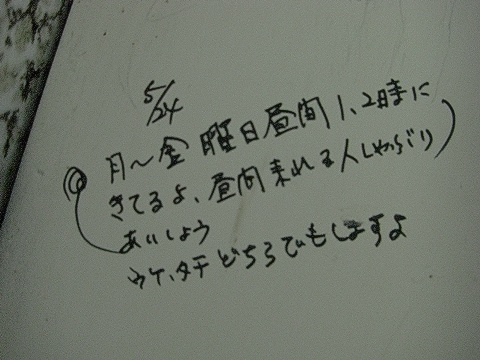 5/24
月〜金曜日昼間1、2時まに
きてるよ、昼間来れる人しゃぶり
あいしょう
ウケ、タチどちらでもしますよ